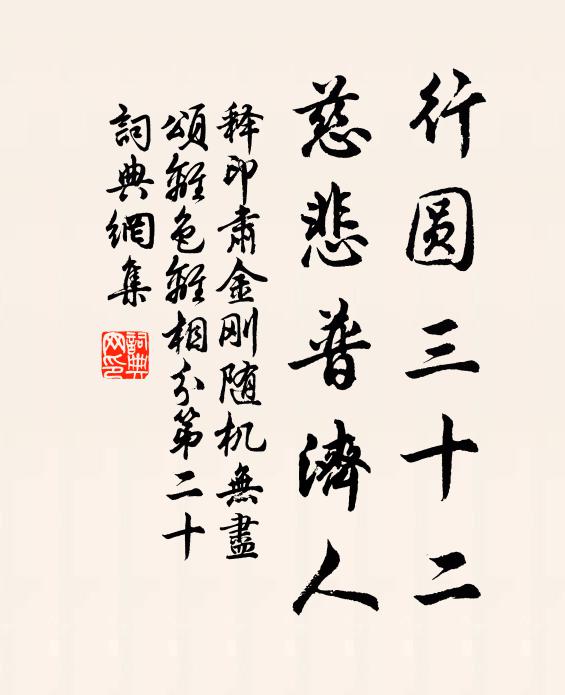 行圆三十二
慈悲普濟人
释印肅金刚随机無盡
頌離色離相分第二十
詞典網集
詞典网印